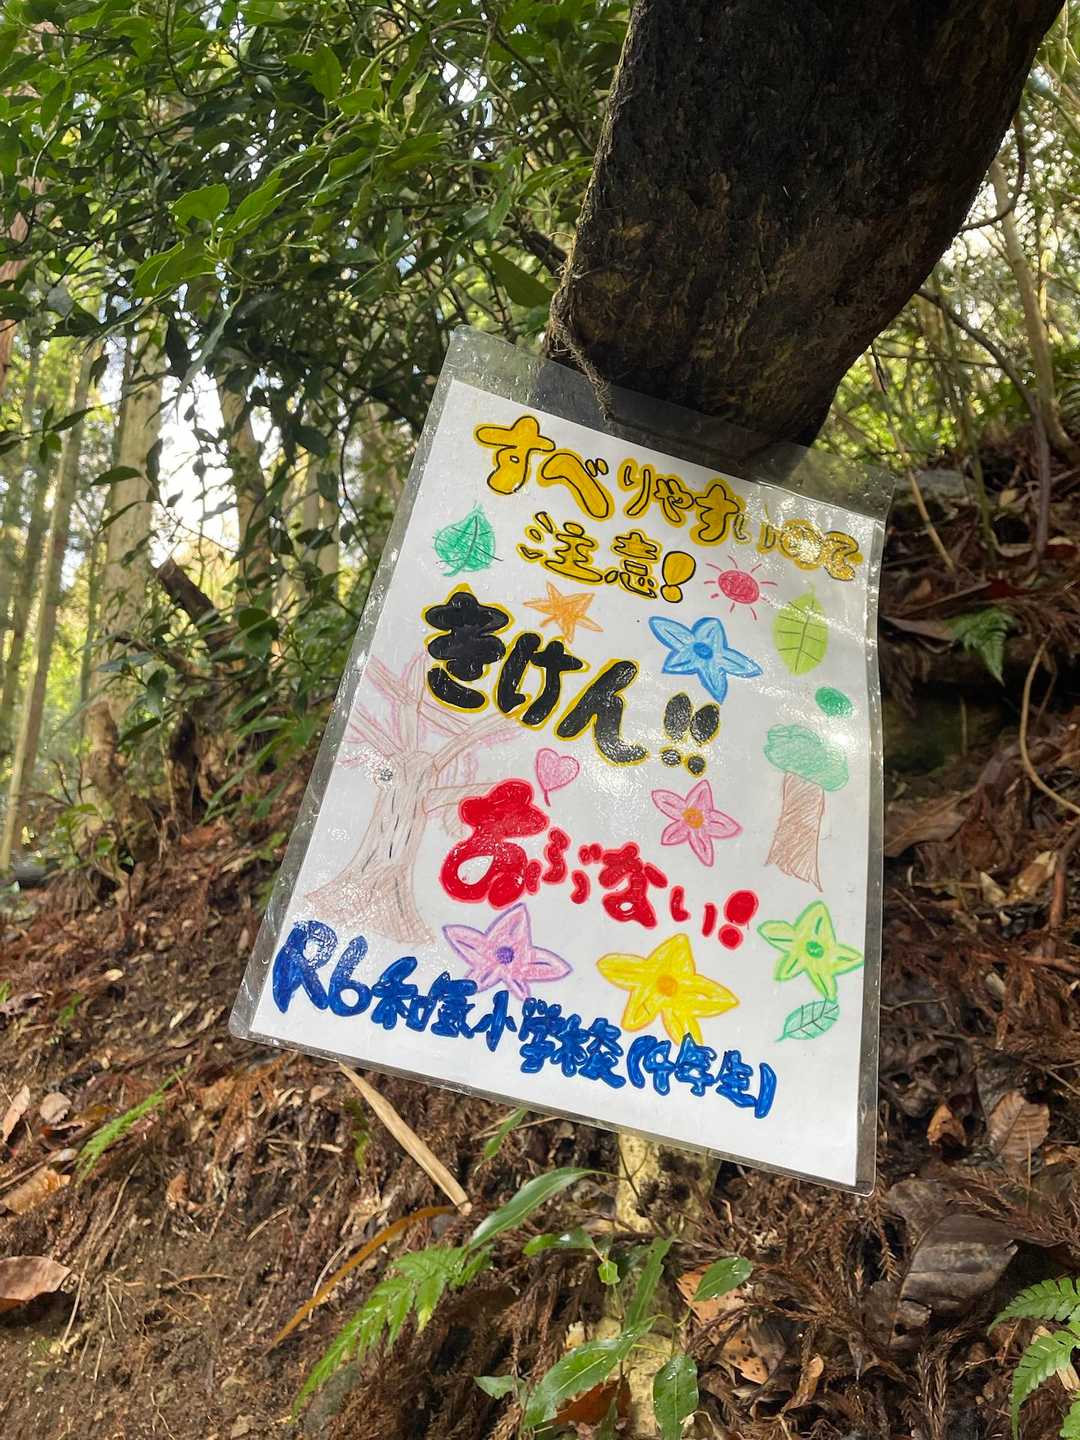 すべりやすいので
注意!
きけん!!
あぶない!
R6和気小学校(4年生)